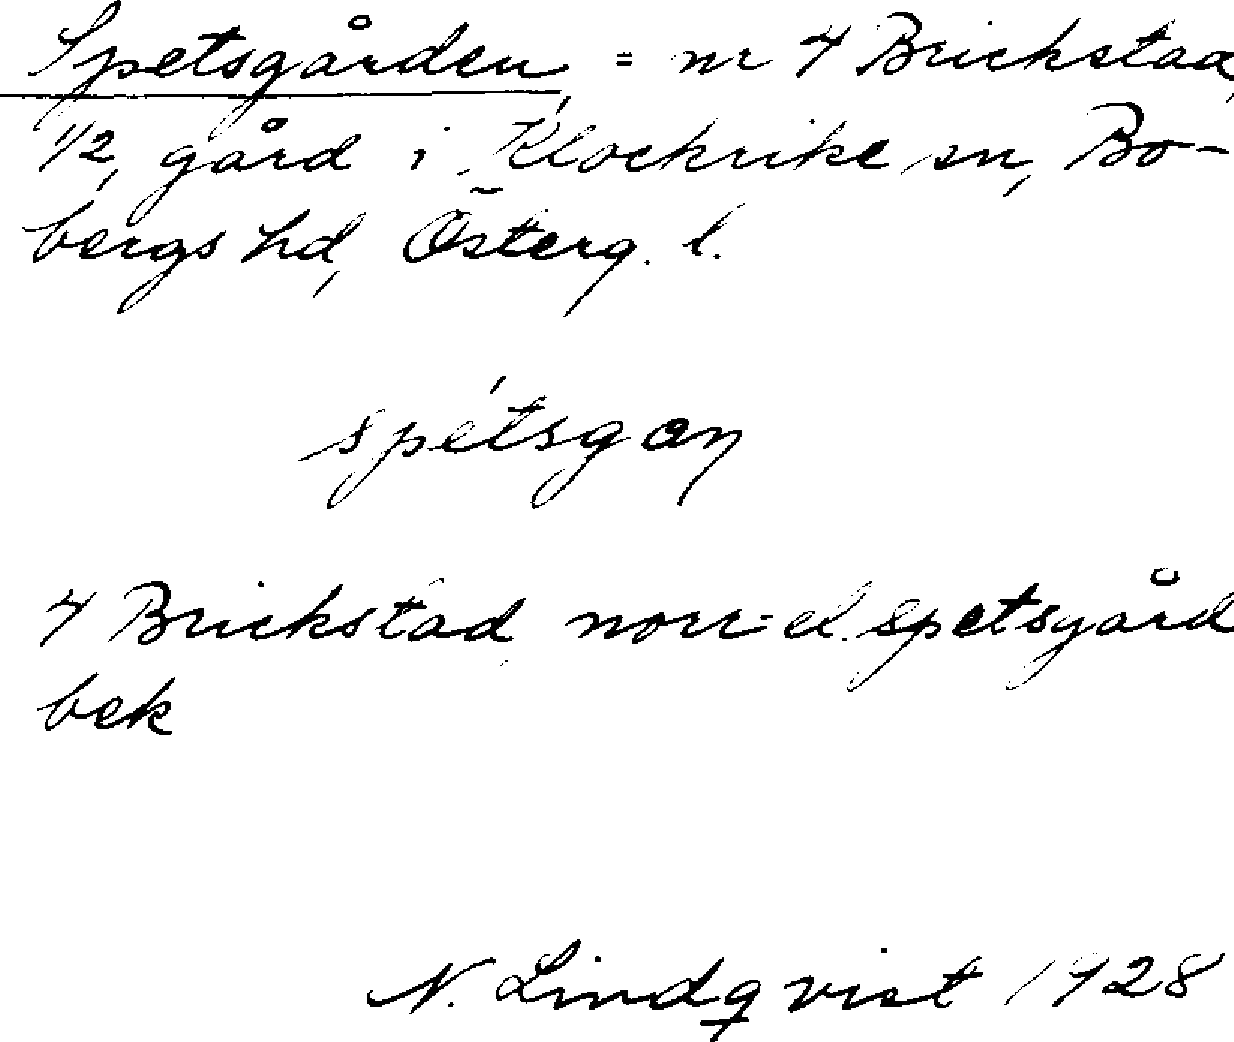 Spetsgården, = nr 4 Brickstad,
1/2, gård i Klockrike sn, Bo-
bergs hd, Österg. l.
spétsgan
4 Brickstad norr- el. spetsgård
bek
N. Lindqvist 1928